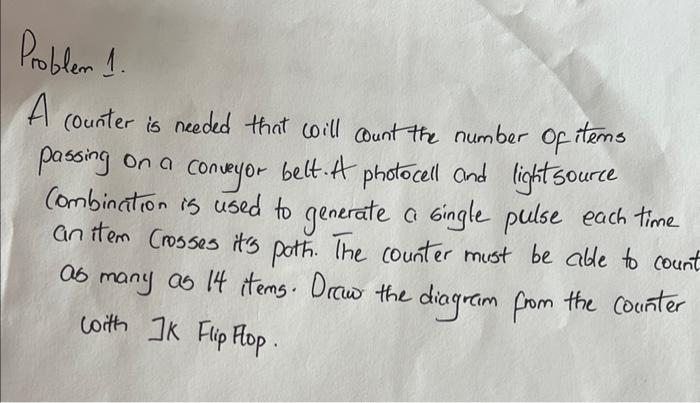 Problem 1.
A counter is needed that will count the number of items
passing on a conveyor belt. A photocell and light source
Combination is used to generate a single pulse each time
an item Crosses it's path. The counter must be able to count
as many as 14 items. Draw the diagram from the counter
with JK Flip Flop.